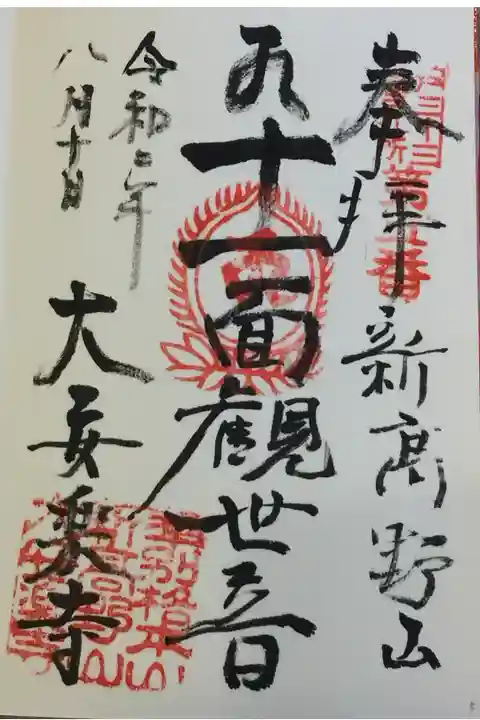 奉拝 新高野山
第五番
十一面観世音
令和二年
八月十日
大安楽寺